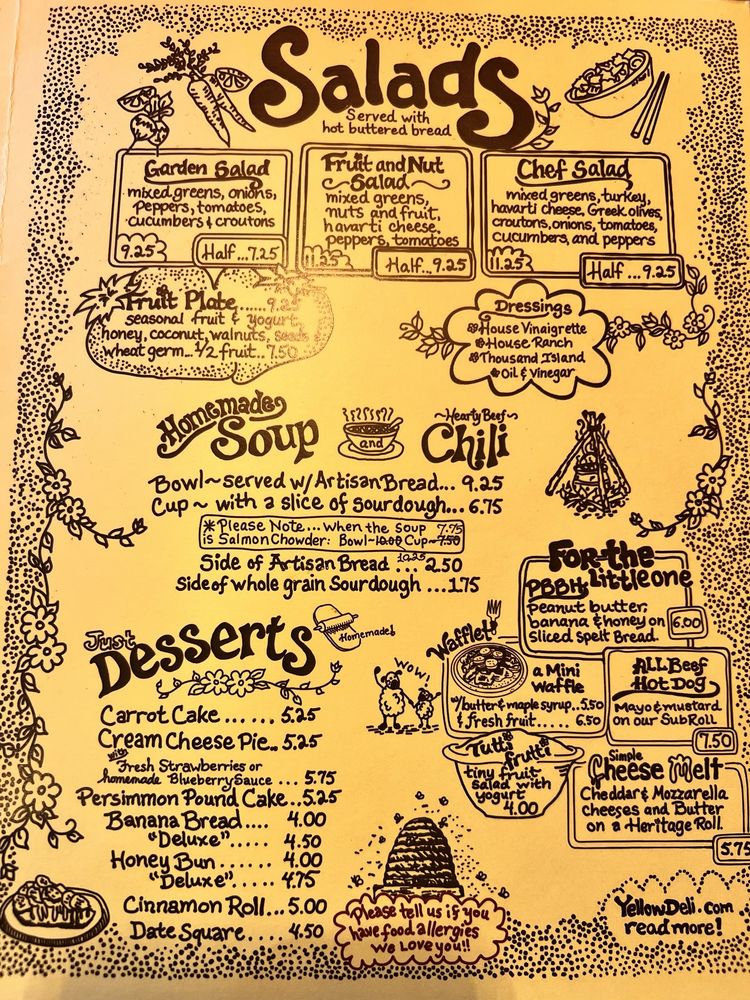 Salads
Served with
hot buttered bread
Garden Salad
mixed greens, onions,
peppers, tomatoes,
cucumbers & croutons
9.25
Half...7.25
Fruit and Nut
Salad
mixed greens,
nuts and fruit,
havarti cheese,
peppers, tomatoes
11.25
Half...9.25
Chef Salad
mixed greens, turkey,
havarti cheese, Greek olives,
croutons, onions, tomatoes,
cucumbers, and peppers
11.25
Half...9.25
Fruit Plate......9.25
seasonal fruit & yogurt,
honey, coconut, walnuts, seeds &
wheat germ... 1/2 fruit..7.50
Dressings
House Vinaigrette
House Ranch
Thousand Island
Oil & Vinegar
Homemade
Soup
and
~Hearty Beef~
Chili
Bowl~served w/ Artisan Bread... 9.25
Cup~ with a slice of sourdough... 6.75
*Please Note... when the soup 7.75
is Salmon Chowder: Bowl~10.00 Cup~7.50
10.25
Side of Artisan Bread ... 2.50
side of whole grain Sourdough ...1.75
For the
little one
PBBH
Peanut butter,
banana & honey on
sliced spelt Bread.
6.00
Waffle!
a Mini
Waffle
w/butter & maple syrup..5.50
& fresh fruit..... 6.50
All Beef
Hot Dog
Mayo & mustard
on our Sub Roll
7.50
Wow!
Tutti
frutti
tiny fruit
salad with
yogurt
4.00
Simple
Cheese Melt
Cheddar & Mozzarella
cheeses and Butter
on a Heritage Roll.
5.75
Just
Desserts
Homemade!
Carrot Cake...... 5.25
Cream Cheese Pie.. 5.25
with
Fresh Strawberries or
homemade Blueberry Sauce ... 5.75
Persimmon Pound Cake...5.25
Banana Bread.... 4.00
"Deluxe"..... 4.50
Honey Bun...... 4.00
"Deluxe"..... 4.75
Cinnamon Roll...5.00
Date Square.... 4.50
Please tell us if you
have food allergies
we Love you!!
YellowDeli.com
read more!